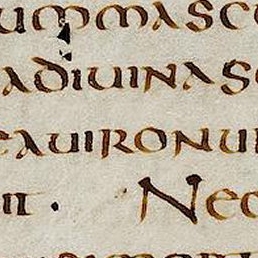 ummasco
adiuinasc
eauironu
it · Nec